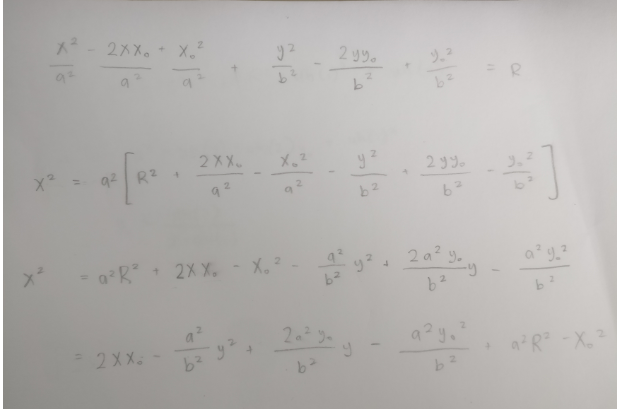 x²/a² - 2xx₀/a² + x₀²/a² + y²/b² - 2yy₀/b² + y₀²/b² = R
x² = a² [ R² + 2xx₀/a² - x₀²/a² - y²/b² + 2yy₀/b² - y₀²/b² ]
x² = a²R² + 2xx₀ - x₀² - a²/b² y² + 2a²y₀/b² y - a²y₀²/b²
= 2xx₀ - a²/b² y² + 2a²y₀/b² y - a²y₀²/b² + a²R² - x₀²